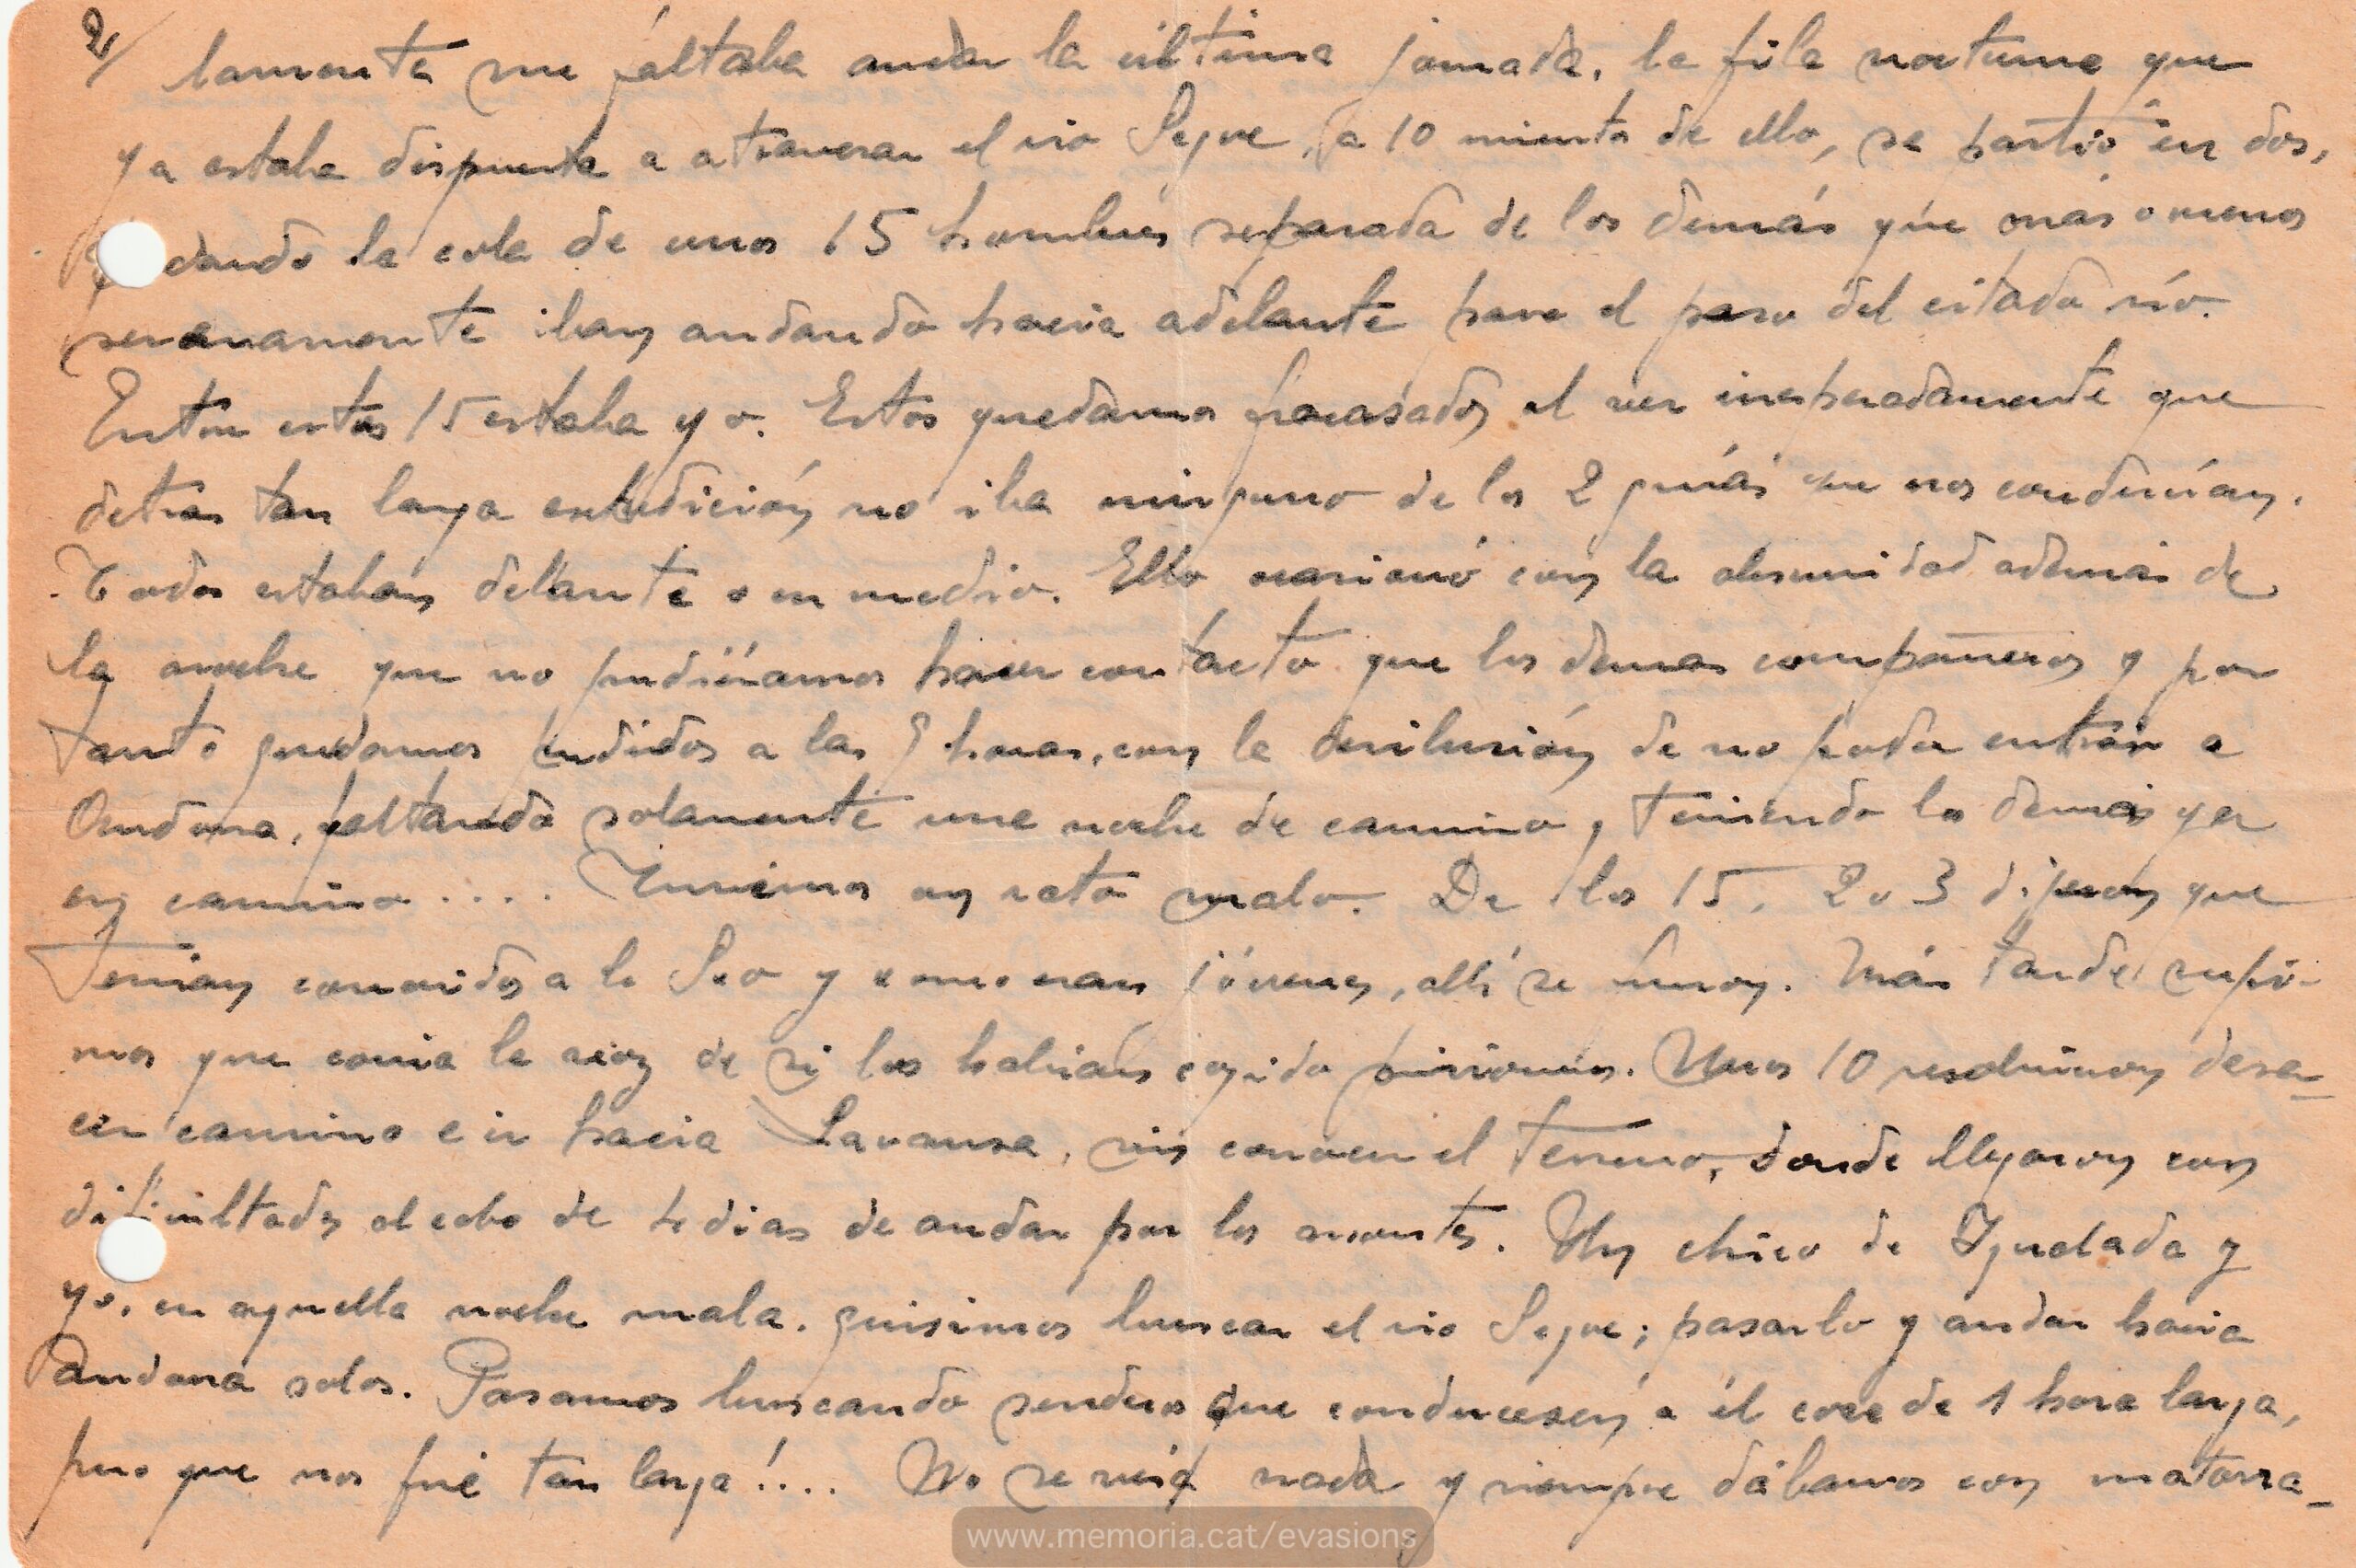 2/ lamente me faltaba andar la última jornada, la fila nocturna que
ya estaba dispuesta a atravesar el rio Segre, (a 10 minutos de ello, se partió en dos,
quedando la cola de unos 15 hombres separada de los demás que más o menos
serenamente iban andando hacia adelante para el paso del citado río.
Entre estos 15 estaba yo. Estos quedamos fracasados al ver inesperadamente que
detras tan larga expedición no iba ninguno de los 2 guías que nos conducían.
Todos estaban delante o en medio. Ello ocasionó con la obscuridad además de
la noche que no pudiéramos hacer contacto que los demas compañeros y por
tanto quedamos perdidos a las 9 horas, con la desilusión de no poder entrar a
Andorra, faltando solamente una noche de camino, teniendo los demás ya
en camino .... Tuvimos un rato malo. De los 15, 2 o 3 dijeron que
tenian conocidos a la Seo y como eran jóvenes, allí se fueron. Más tarde supi-
mos que corria la voz de si los habían cogido prisioneros. Unos 10 resolvieron desa-
cer camino e ir hacia Lavansa, sin conocer el terreno, donde llegaron con
dificultades al cabo de 4 dias de andar por los montes. Un chico de Igualada y
yo, en aquella noche mala, quisimos buscar el rio Segre; pasarlo y andar hacia
Andorra solos. Pasamos buscando senderos que conduciesen a él cerca de 1 hora larga,
pero que nos fué tan larga!.... No se veía nada y siempre dábamos con matorra-
www.memoria.cat/evasions